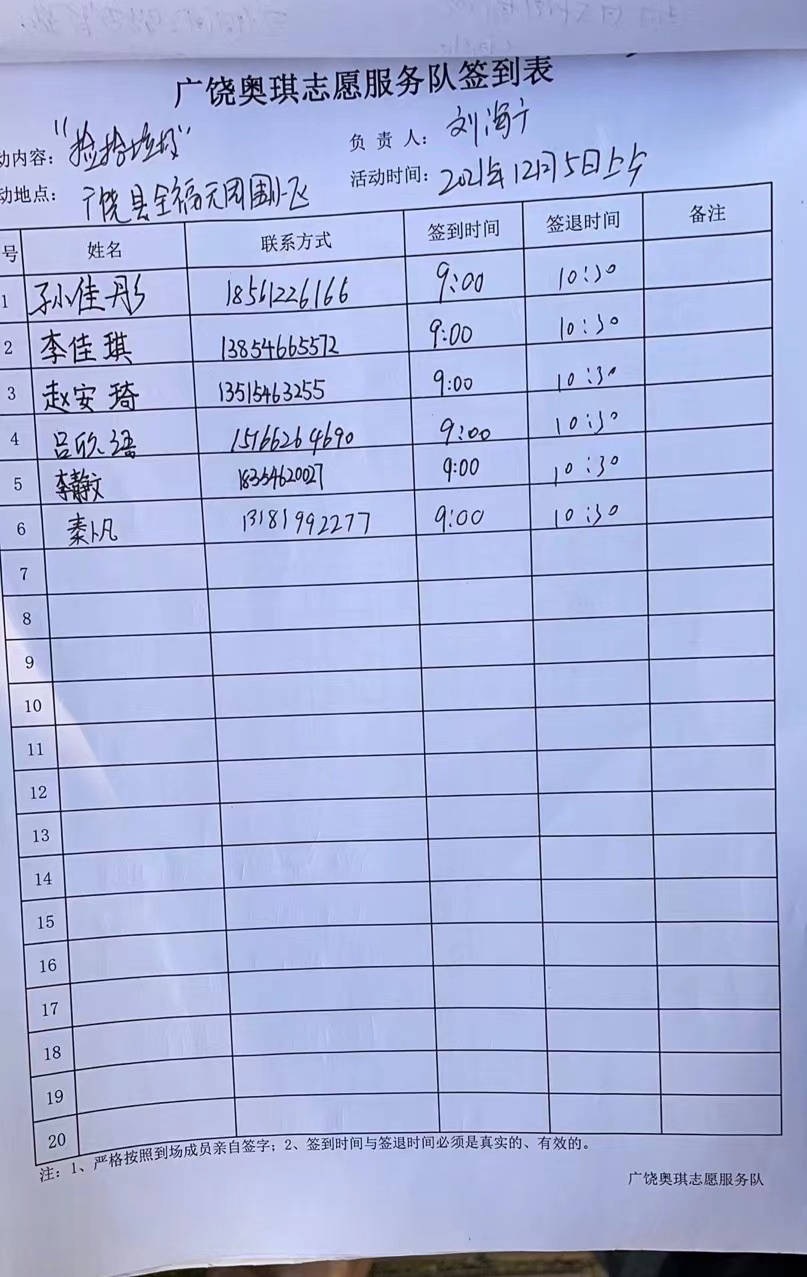 广饶奥琪志愿服务队签到表
动内容：“捡拾垃圾” 负 责 人： 刘海宁
动地点： 广饶县全福元周围小区 活动时间： 2021年12月5日上午
号 姓名 联系方式 签到时间 签退时间 备注
1 孙佳彤 18561226166 9:00 10:30
2 李佳琪 13854665572 9:00 10:30
3 赵安琦 13515463255 9:00 10:30
4 吕欣语 15766264690 9:00 10:30
5 李静文 18354620027 9:00 10:30
6 秦卜凡 13181992277 9:00 10:30
7
8
9
10
11
12
13
14
15
16
17
18
19
20
注：1、严格按照到场成员亲自签字；2、签到时间与签退时间必须是真实的、有效的。
广饶奥琪志愿服务队